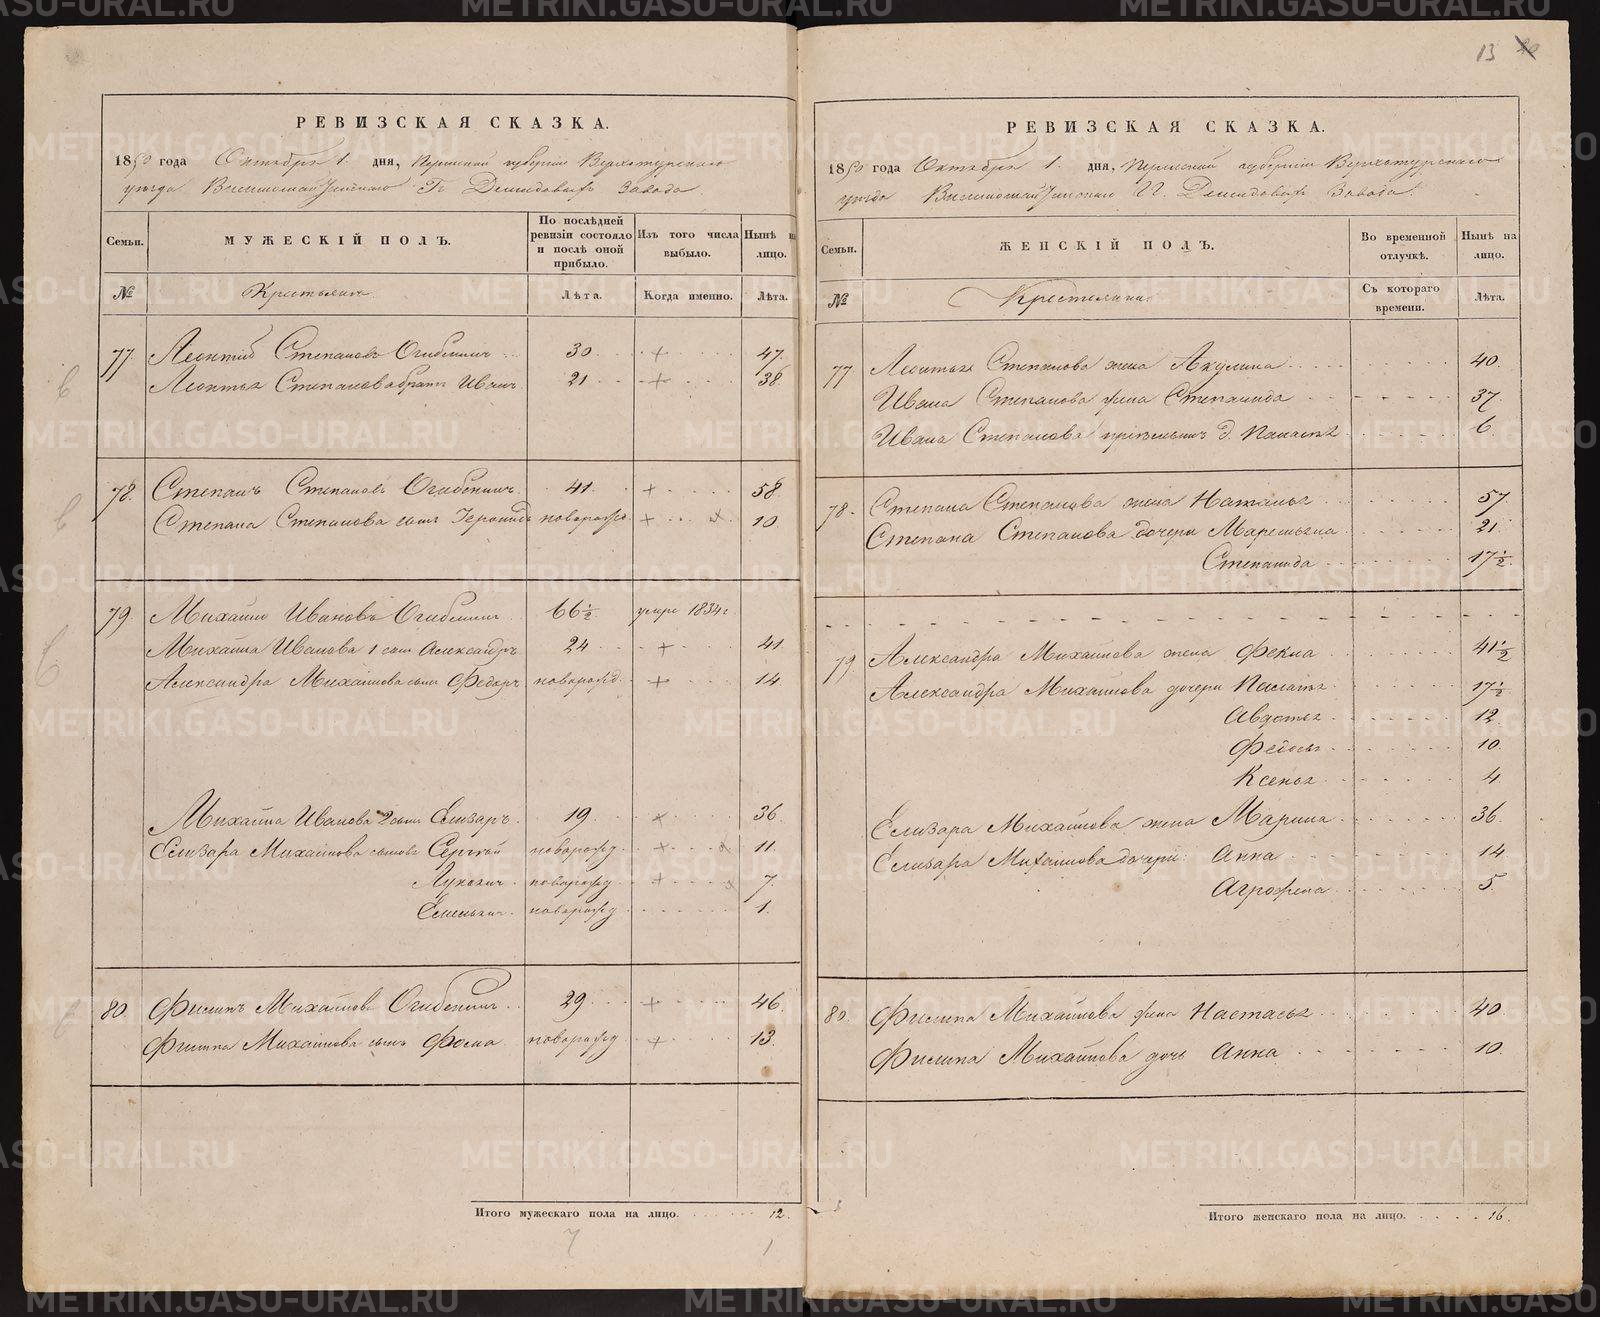 13
РЕВИЗСКАЯ СКАЗКА.
1850 года Октября 1. дня, Пермской губернии Верхотурскаго
уезда Висимошайтанскаго Гг. Демидовыхъ Завода
Семьи.
МУЖЕСКІЙ ПОЛЪ.
По послѣдней ревизіи состояло и послѣ оной прибыло.
Изъ того числа выбыло.
Нынѣ на лицо.
№
Крестьянъ
Лѣта.
Когда именно.
Лѣта.
77. Леонтий Степановъ Огибенинъ 30 47.
Леонтья Степанова братъ Иванъ 21 38
78. Степанъ Степановъ Огибенинъ 41. 58
Степана Степанова сынъ Геронидъ новорожд 10
79. Михайло Ивановъ Огибенинъ 66½ умре 1834 г.
Михайла Иванова 1 сынъ Александръ 24 41
Александра Михайлова сынъ Федоръ новорожд. 14
Михайла Иванова 2 сынъ Елизаръ 19 36
Елизара Михайлова сыновья Сергѣй новорожд 11
Лукоянъ новорожд 7.
Емельянъ новорожд 1.
80. Филипъ Михайловъ Огибенинъ 29 46
Филипа Михайлова сынъ Фома новорожд 13.
Итого мужескаго пола на лицо. 12.
РЕВИЗСКАЯ СКАЗКА.
1850 года Октября 1. дня, Пермской губерніи Верхотурскаго
уезда Висимошайтанскаго ГГ. Демидовыхъ Завода
Семьи.
ЖЕНСКІЙ ПОЛЪ.
Во временной отлучкѣ.
Нынѣ на лицо.
№
Крестьянъ
Съ котораго времени.
Лѣта.
77. Леонтья Степанова жена Акулина 40
Ивана Степанова жена Степанида 37
Ивана Степанова д. 6
78. Степана Степанова жена Наталья 57
Степана Степанова дочери Маремьяна 21
Степанида 17½
79. Александра Михайлова жена Фекла 41½
Александра Михайлова дочери Палагья 17½
Авдотья 12
Федосья 10
Ксенья 4
Елизара Михайлова жена Марина 36
Елизара Михайлова дочери: Анна 14
Агрофена 5
80. Филипа Михайлова жена Настасья 40
Филипа Михайлова дочь Анна 10
Итого женскаго пола на лицо. 16.
METRIKI.GASO-URAL.RU